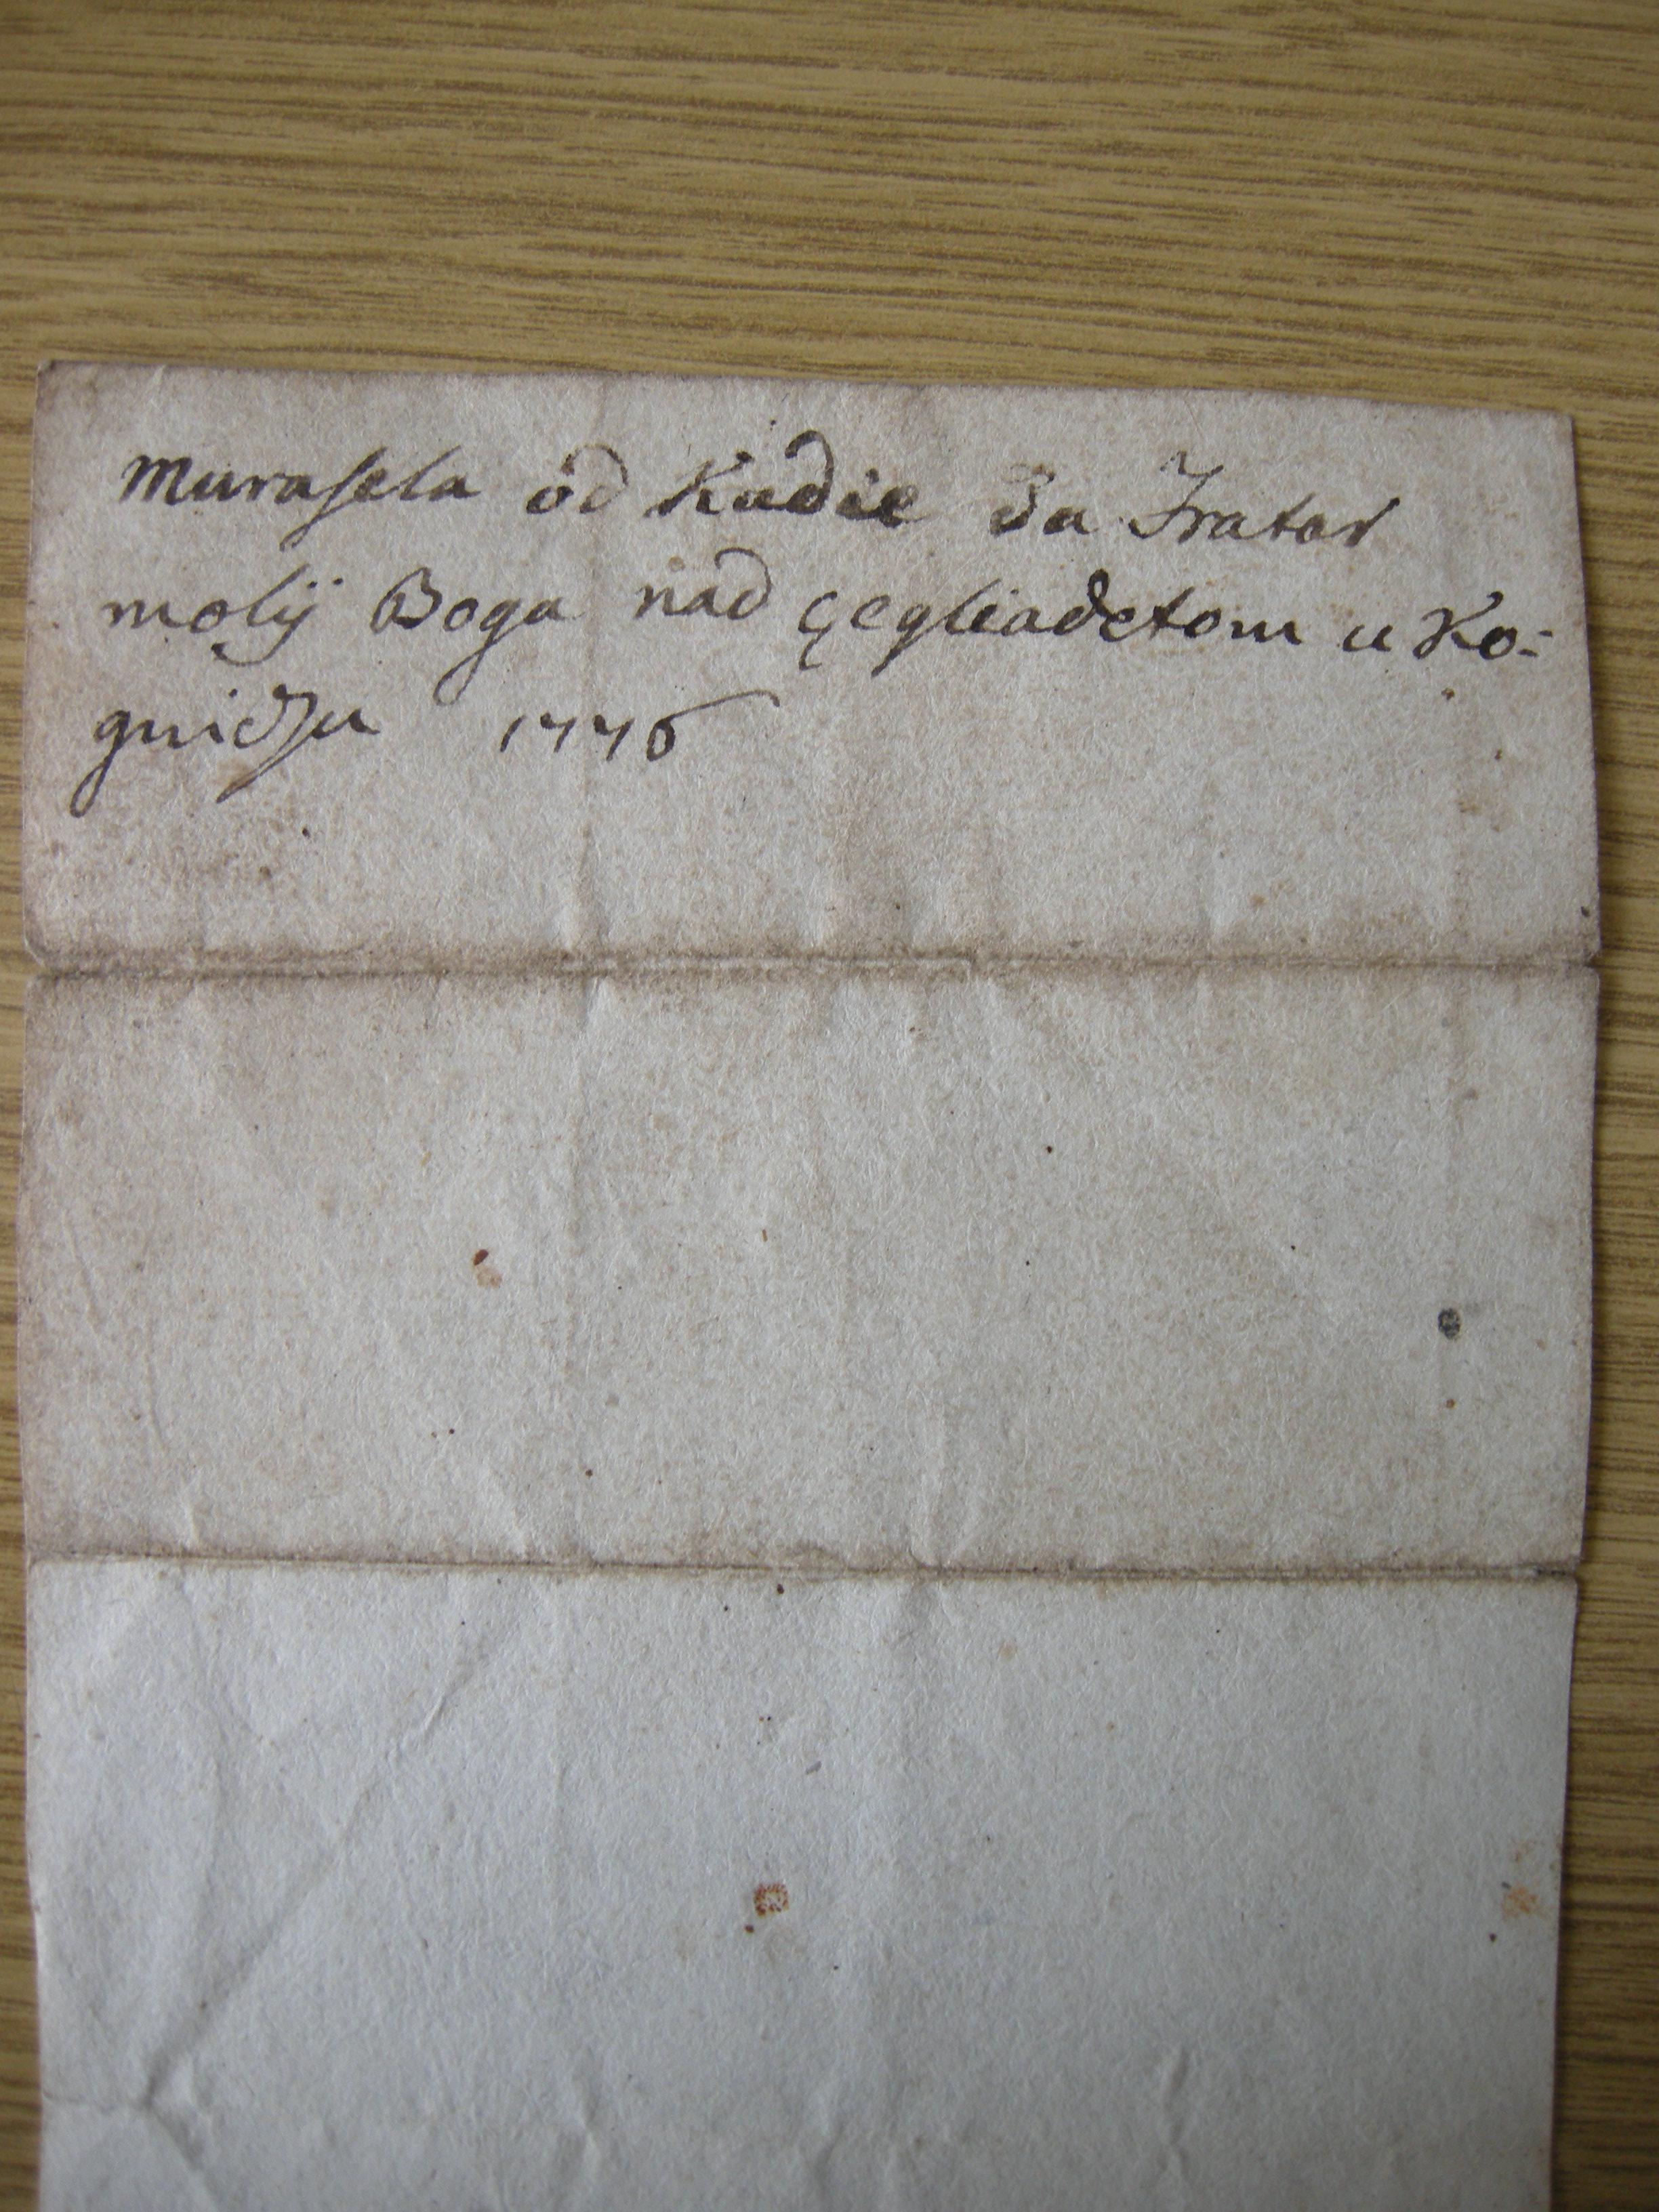 Murasela od Kadie da Fratar
molij Boga nad çegliadetom u Ko-
gnidzu 1776